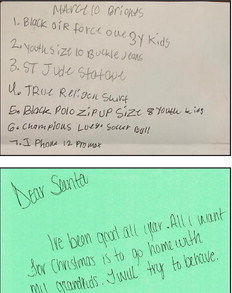 MARCELO
1. Black air force one 3y kids
2. Youth size 10 Buckle Jeans
3. ST Jude Statove
4. True Religon Shirt
5. Black Polo Zip UP Size 8 youth
6. Champions Soccer Ball
7. I Phone 12 Pro max
Dear Santa
Ive been good all year. All i want
for Christmas is to go home with
my grandkids. I will try to behave.